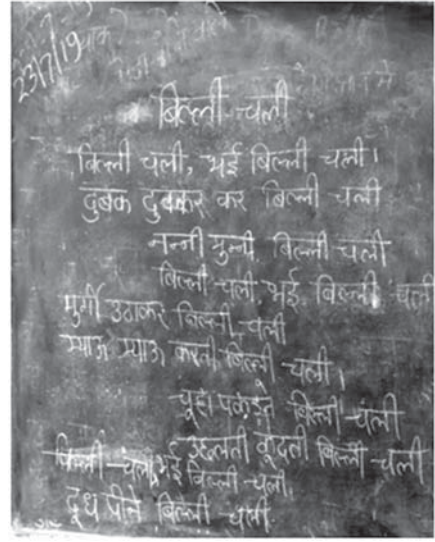 23/7/19
बिल्ली चली
बिल्ली चली, भई बिल्ली चली।
दुबक दुबकर कर बिल्ली चली
नन्नी मुन्नी बिल्ली चली
बिल्ली चली, भई बिल्ली चली
मुर्गी उठाकर बिल्ली चली
म्याऊ म्याऊ करती बिल्ली चली।
चूहा पकड़ने बिल्ली चली
उछलती कूदती बिल्ली चली
बिल्ली चली, भई बिल्ली चली,
दूध पीने बिल्ली चली